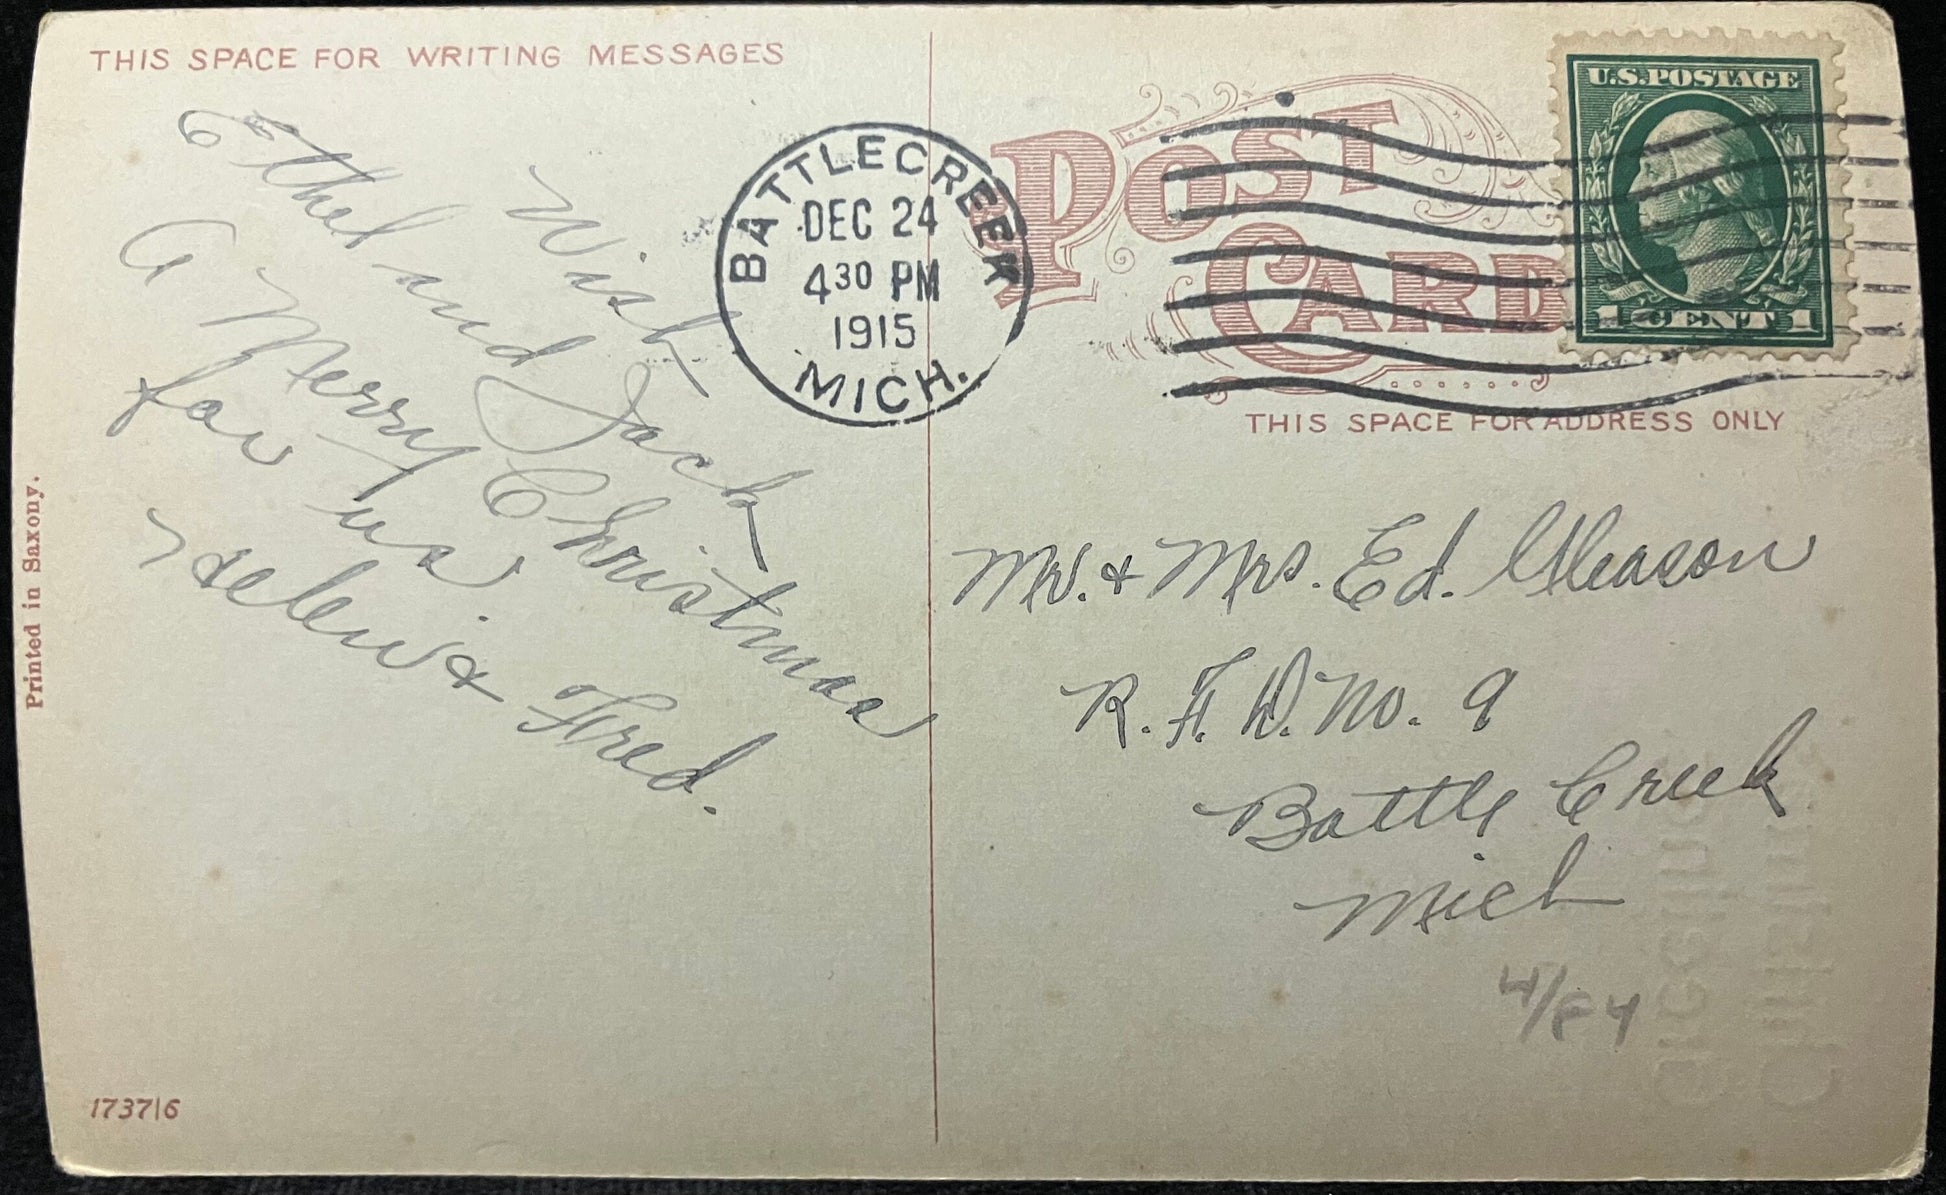 THIS SPACE FOR WRITING MESSAGES
Wish
Ethel and Jack
a Merry Christmas
for us.
Helen & Fred.
Printed in Saxony.
173716
BATTLE CREEK
DEC 24
4 30 PM
1915
MICH.
POST
CARD
U.S. POSTAGE
1 CENT 1
THIS SPACE FOR ADDRESS ONLY
Mr. & Mrs. Ed. Gleason
R. F. D. No. 9
Battle Creek
Mich